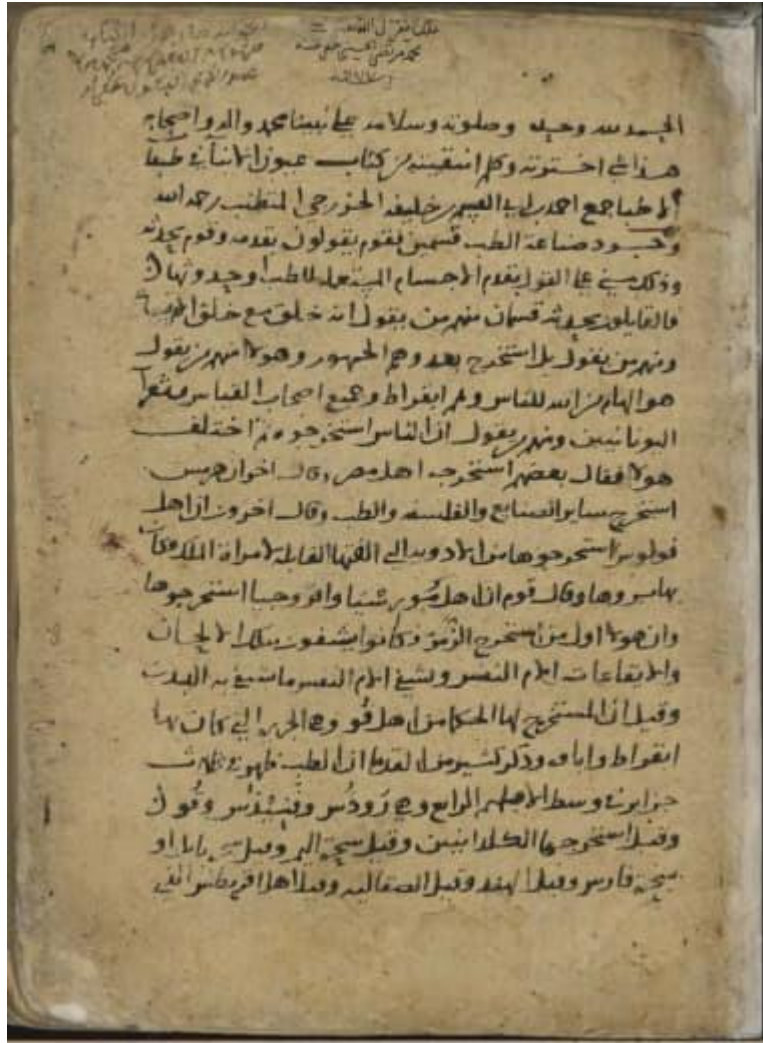 الحمد لله وحده وصلوته وسلامه على نبينا محمد واله واصحابه
هذا ما اخترته وكلم انتقيته من كتاب عيون الانبا في طبقا
الاطبا جمع احمد بن ابي القسم بن خليفه الخزرجي المتطبب رحمه الله
وجود صناعة الطب قسمين فقوم يقولون بقدمه وقوم بحدثه
وذلك مبني على القول بقدم الاجسام المستعمله للطب وحدوثها
فالقايلون بحدثه قسمان منهم من يقول انه خلق مع خلق الانسان
ومنهم من يقول بل استخرج بعد وهم الجمهور وهولا منهم من يقول
هو الهام من الله للناس وهم ابقراط وجميع اصحاب القياس وشعرا
اليونانيين ومنهم من يقول ان الناس استخرجوه ثم اختلف
هولا فقال بعضهم استخرجه اهل مصر وقال اخرون هرمس
استخرج ساير الصنايع والفلسفه والطب وقال اخرون ان اهل
قولوس استخرجوها من الادويه التي الفتها القابله لامراة الملك وكان
بها بروها وقال قوم ان اهل موسيا وافروجيا استخرجوها
وان هولا اول من استخرج الزمر وكانوا يشفون بتلك الالحان
والايقاعات الام النفس ويشفي الام النفس ما يشفى به البدن
وقيل ان المستخرج لها الحكما من اهل قو وهي الجزيره التي كان بها
ابقراط واباوه وذكر كثير من القدما ان الطب ظهر في ثلث
جزاير في وسط الاقليم الرابع وهي رودس وقنيدس وقو
وقيل استخرجها الكلدانيين وقيل سحرة اليمن وقيل سحرة بابل او
سحرة فارس وقيل الهند وقيل الصقالبه وقيل اهل اقريطس الذي